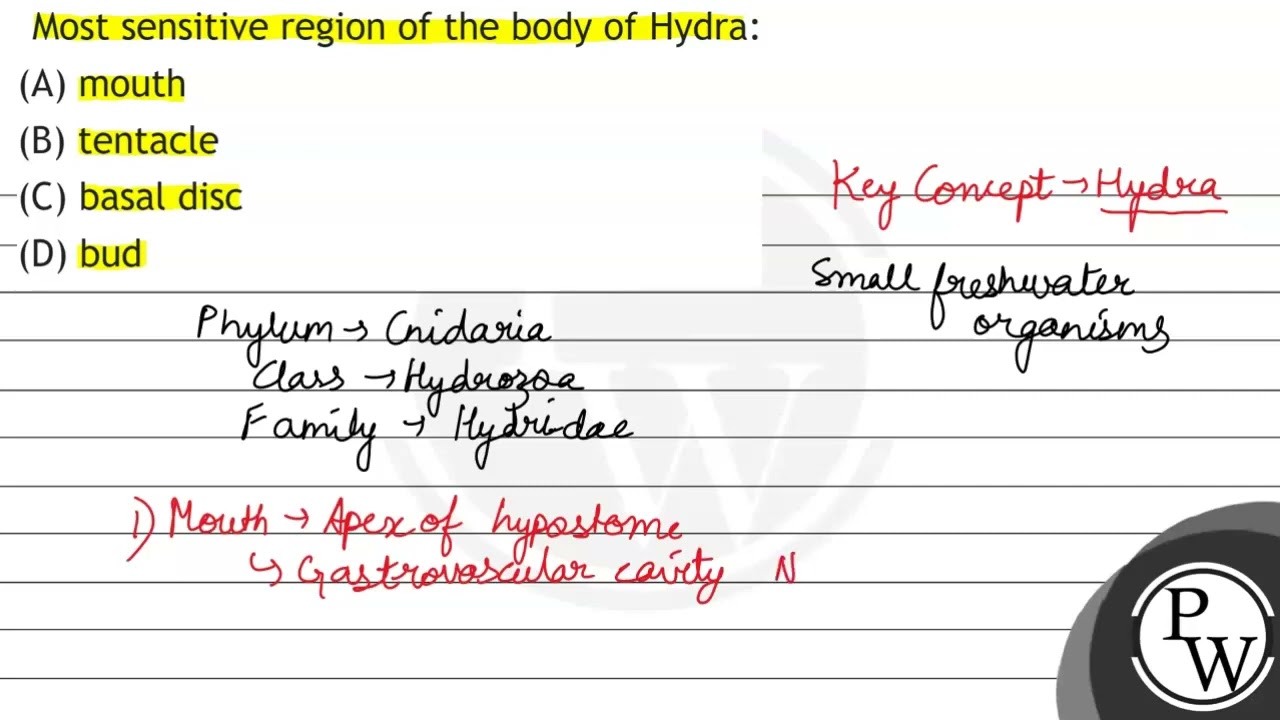 Most sensitive region of the body of Hydra:
(A) mouth
(B) tentacle
(C) basal disc
(D) bud
Key Concept → Hydra
Small freshwater
organisms
Phylum → Cnidaria
Class → Hydrozoa
Family → Hydridae
1) Mouth → Apex of hypostome
↳ Gastrovascular cavity N
PW